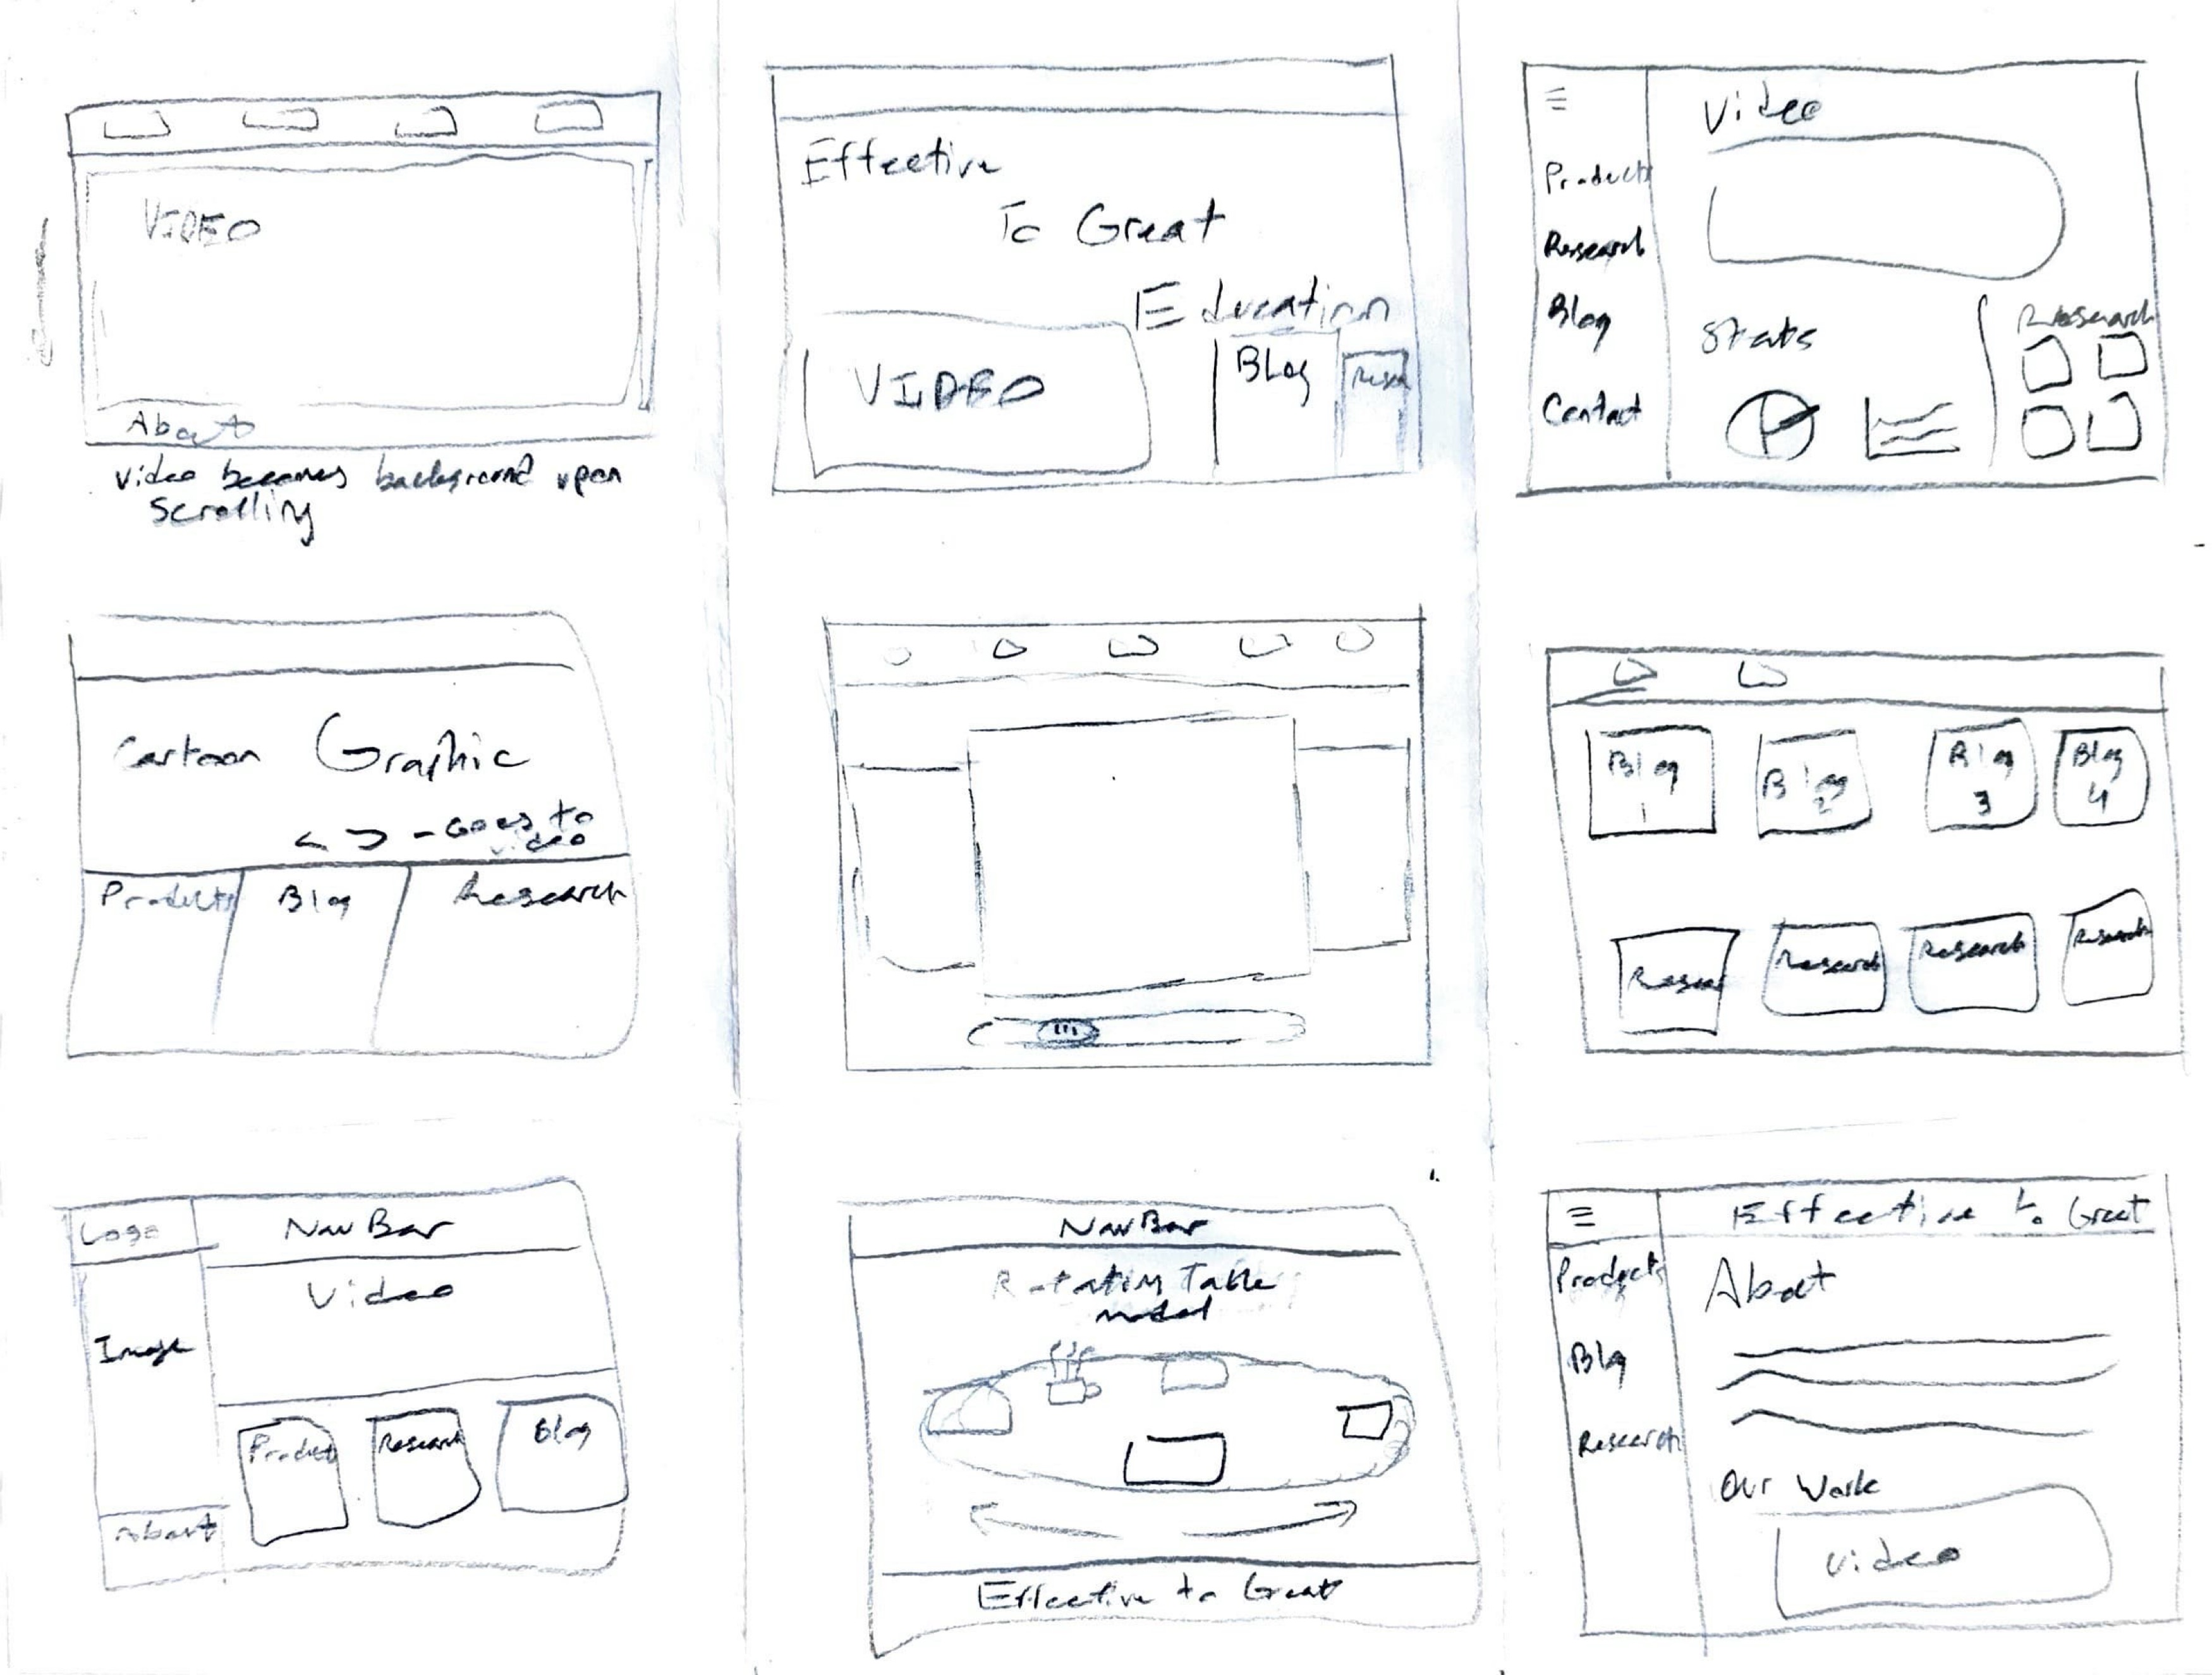 VIDEO
About
Video becomes background upon
Scrolling
Effective
To Great
Education
VIDEO
Blog
Video
Products
Research
Blog
Contact
Stats
Research
Cartoon Graphic
<> - Goes to
video
Products
Blog
Research
Blog
1
Blog
2
Blog
3
Blog
4
Research
Research
Research
Logo
NavBar
Video
Image
Product
Research
Blog
About
NavBar
Rotating Table
model
Effective to Great
Effective to Great
Products
Blog
Research
About
Our Work
Video